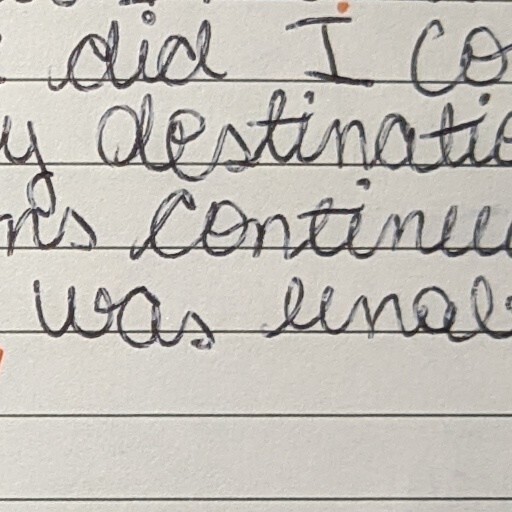 did I co
y destinatio
ns continu
was unab